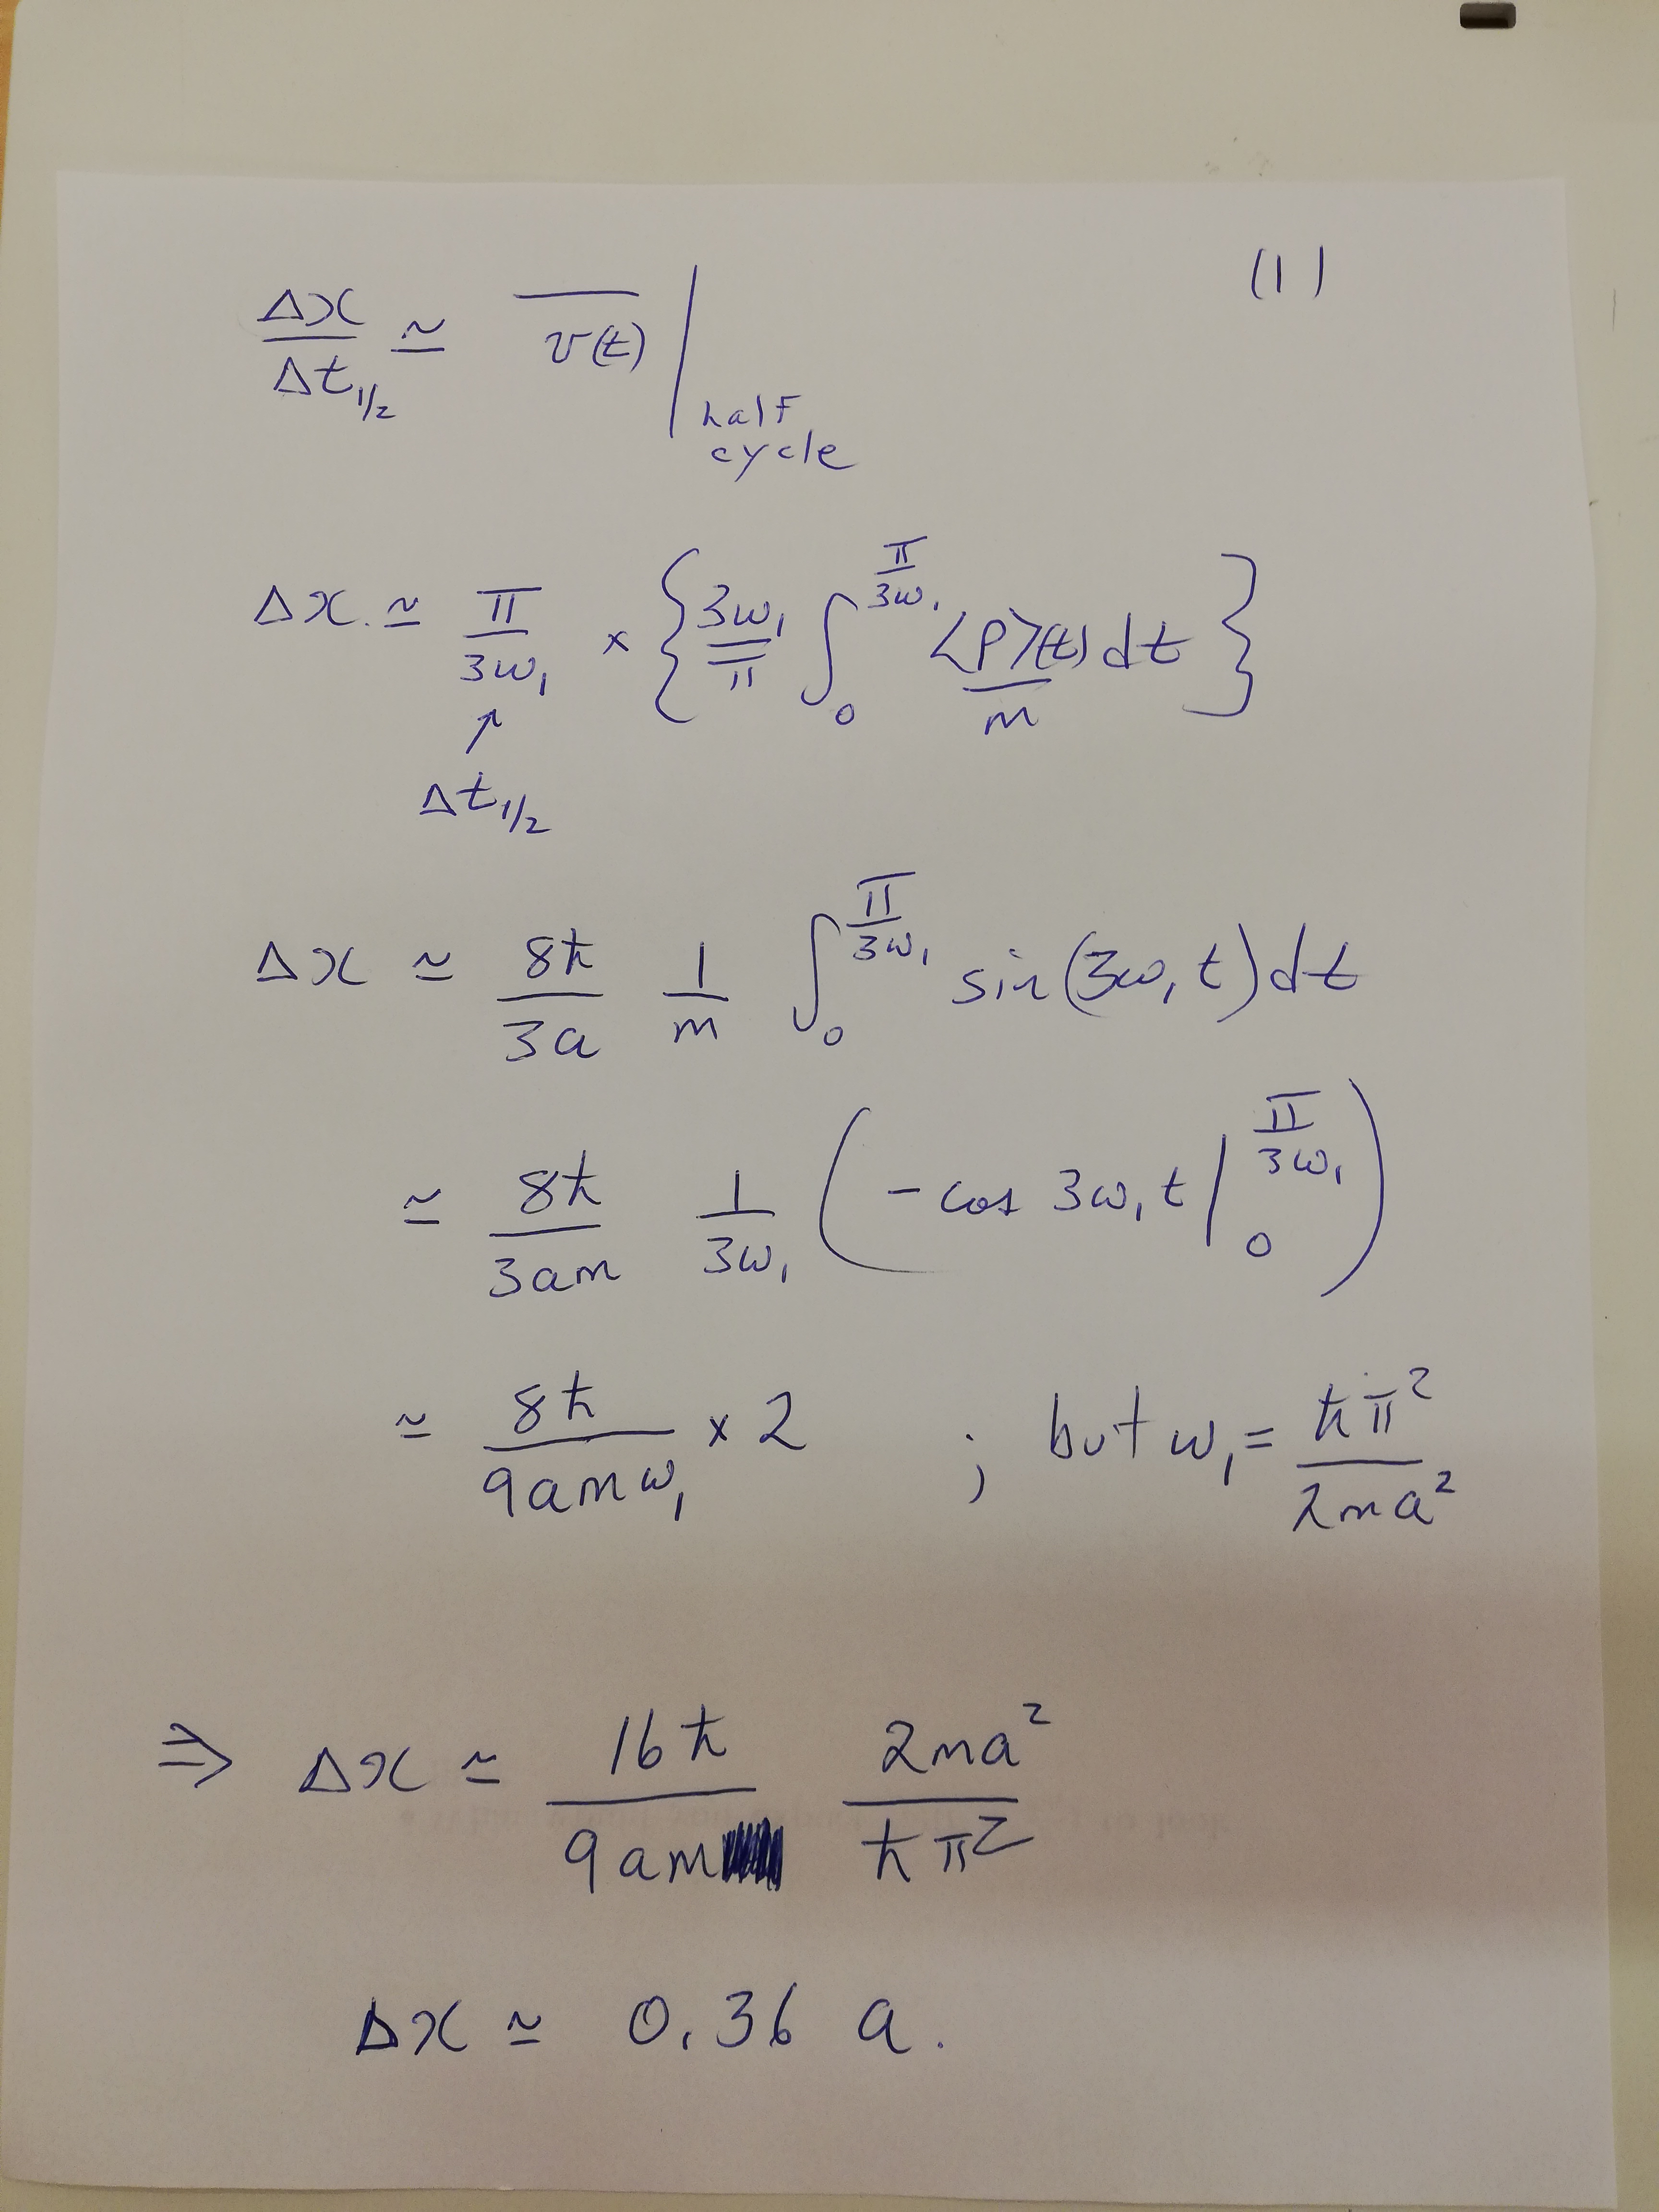 (1)
Δx/Δt_{1/2} ≃ \overline{v(t)} |_{half cycle}
Δx. ≃ π/3ω₁ × { 3ω₁/π ∫₀^{π/3ω₁} <p>(t)/m dt }
↑
Δt_{1/2}
Δx ≃ 8ħ/3a 1/m ∫₀^{π/3ω₁} sin(3ω₁t)dt
≃ 8ħ/3am 1/3ω₁ ( -cos 3ω₁t |₀^{π/3ω₁} )
≃ 8ħ/9amω₁ × 2 ; but ω₁ = ħπ²/2ma²
⇒ Δx ≃ 16ħ/9am 2ma²/ħπ²
Δx ≃ 0.36 a.